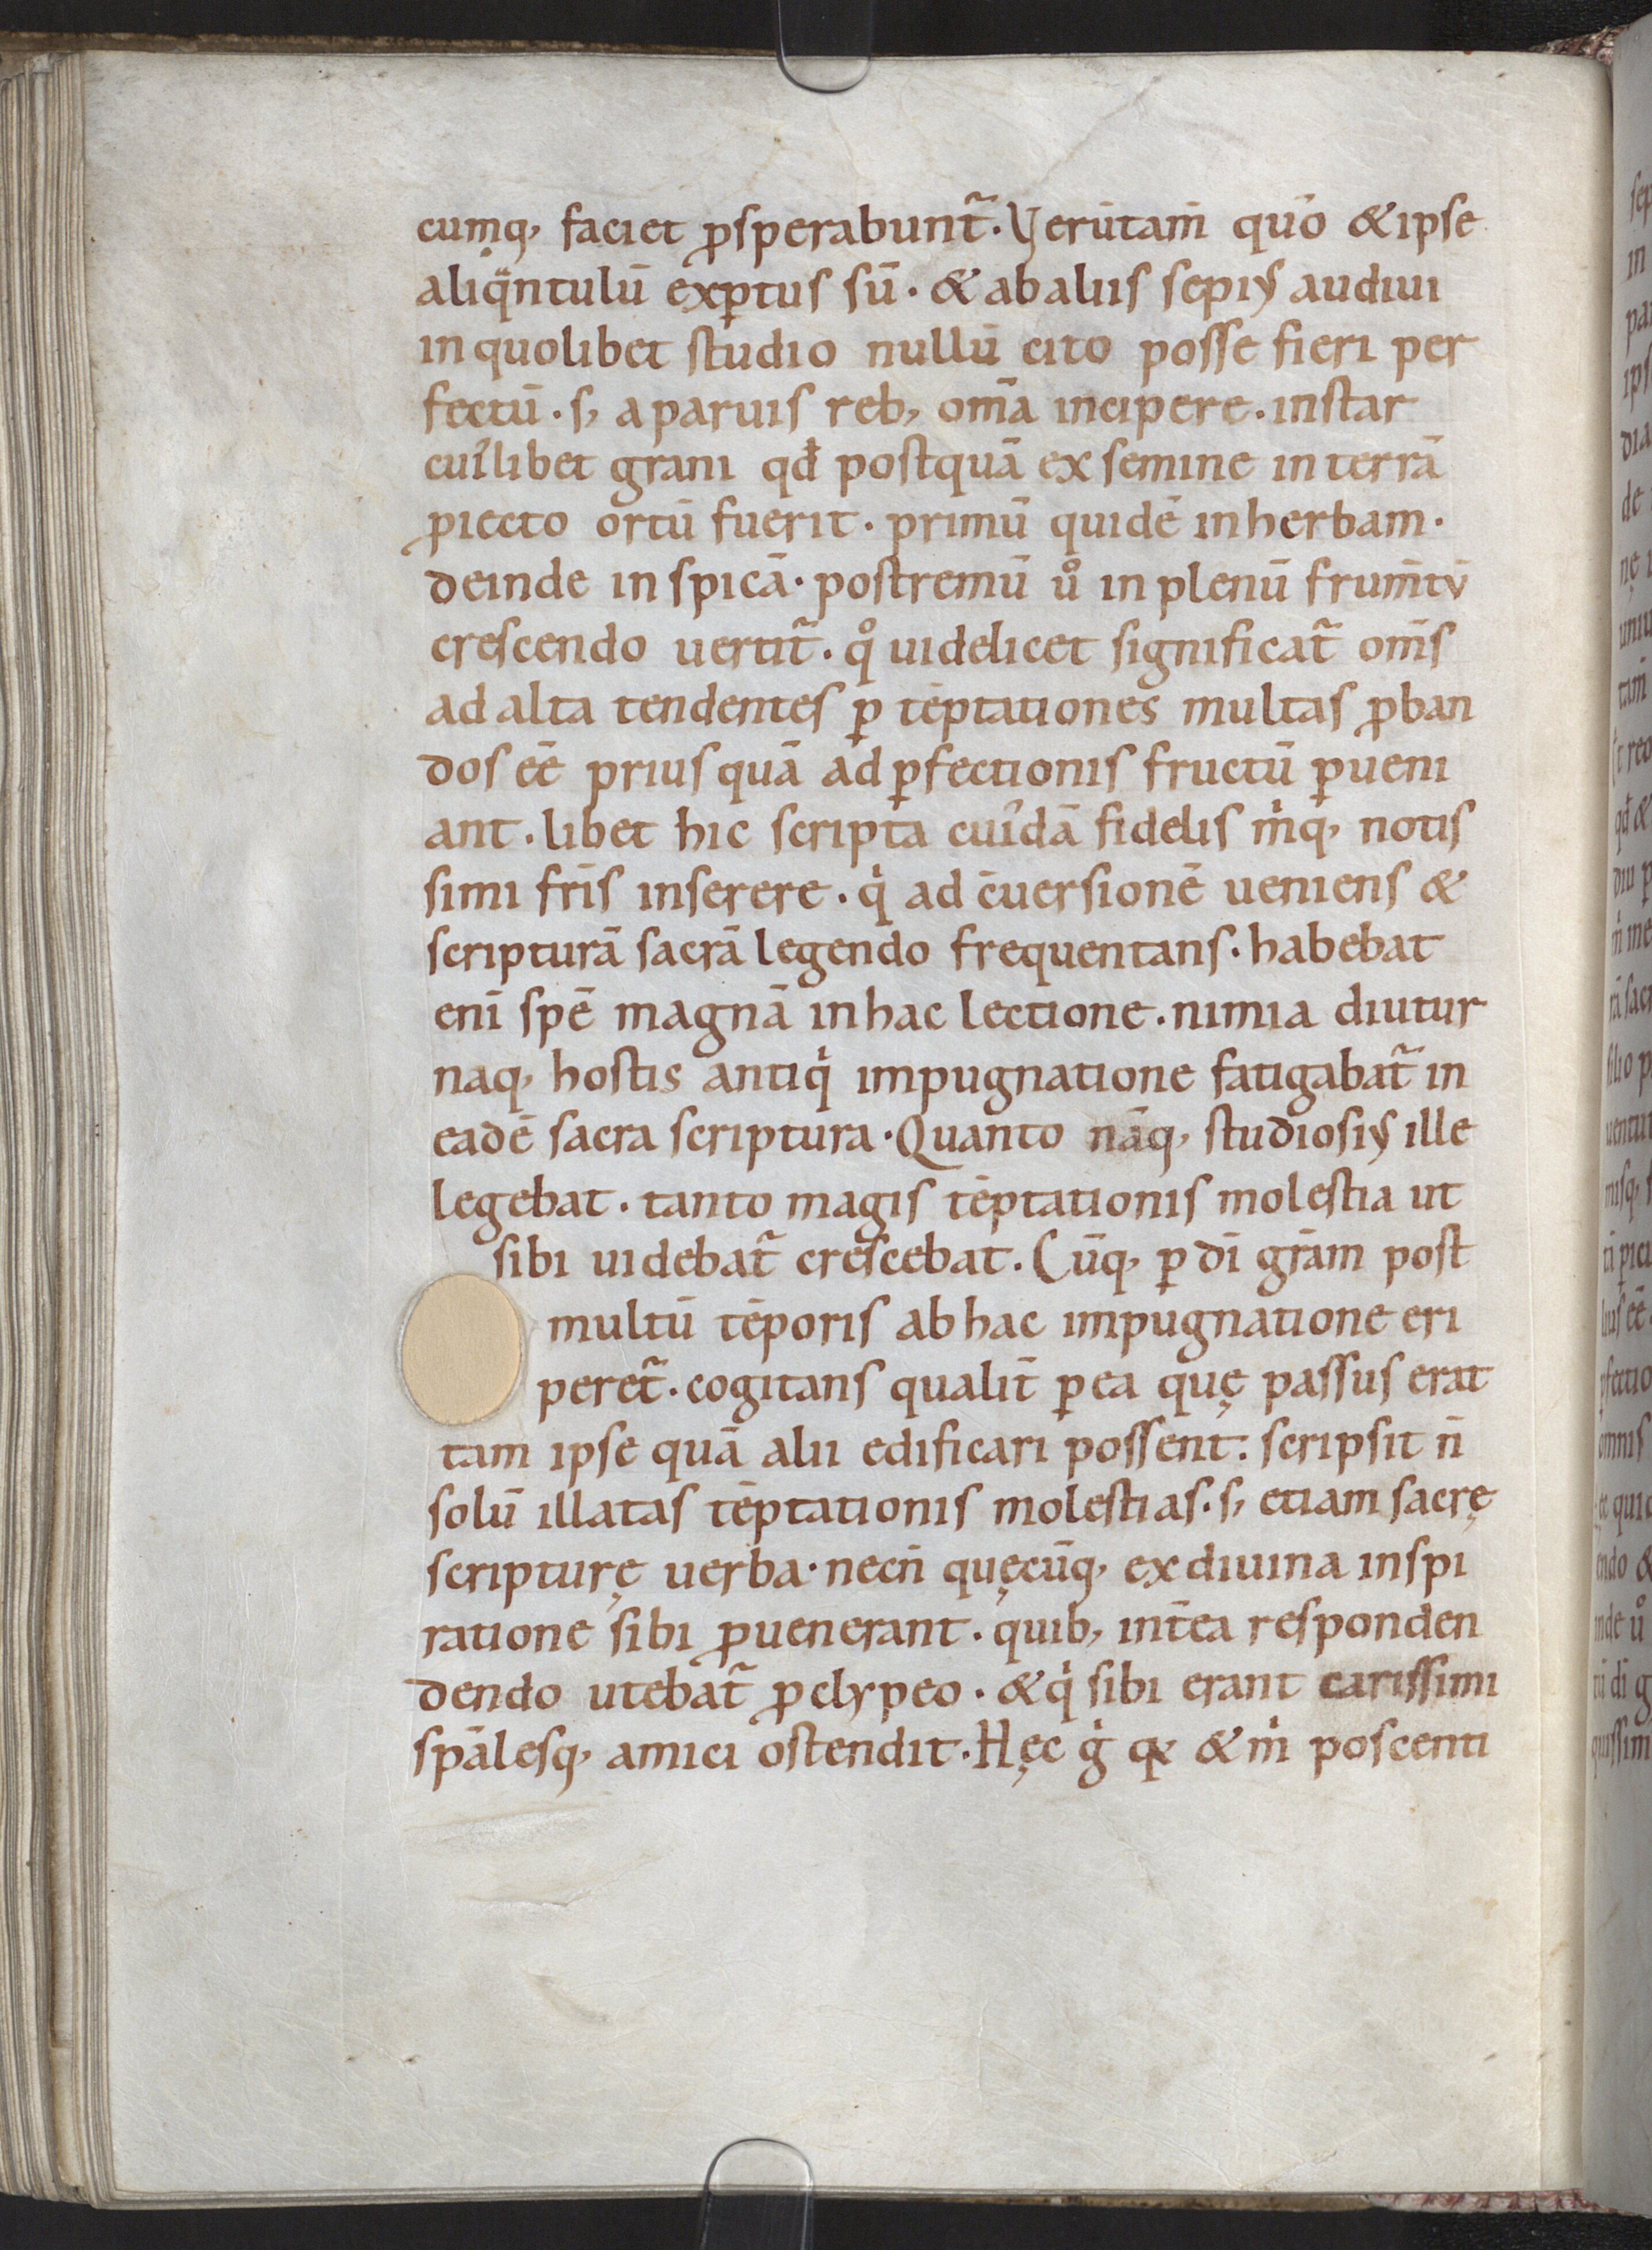 cumq, faciet ꝓsperabunt᷉. Verūtam̄ quō & ipse
aliqᷓntulū exꝑtus sū. & ab aliis sepiꝰ audiui
in quolibet studio nullū cito posse fieri per
fectū. s, a paruis reb, om̄a incipere. instar
cuı̉libet grani qđ postquā ex semine in terrā
ꝓiecto ortū fuerit. primū quidē in herbam.
deinde in spicā. postremū uͦ in plenū frum̄tū
crescendo uertit᷉. qͦ uidelicet significat᷉ om̄s
ad alta tendentes ꝑ tēptationes multas ꝓban
dos eē prius quā ad ꝑfectionis fructū ꝑueni
ant. libet hic scripta cuı̉dā fidelis mͥq, notis
simi fr̄is inserere. qͥ ad c̄uersionē ueniens &
scripturā sacrā legendo frequentans. habebat
eni̅ spē magnā in hac lectione. nimia diutur
naq, hostis antiqͥ impugnatione fatigabat᷉ in
eadē sacra scriptura. Quanto nāq, studiosiꝰ ille
legebat. tanto magis tēptationis molestia ut
sibi uidebat᷉ crescebat. Cūq, ꝑ dı̄ gr̄am post
multū tēporis ab hac impugnatione eri
peret᷉. cogitans qualit̄ ꝑ ea quę passus erat
tam ipse quā alii edificari possent: scripsit n̄
solū illatas tēptationis molestias. s, etiam sacrę
scripturę uerba. necn̄ quęcūq, ex diuina inspi
ratione sibi ꝓuenerant. quib, int̄ea responden
dendo utebat᷉ ꝓ clypeo. & qͥ sibi erant carissimi
sp̄alesq, amici ostendit. Hęc gͥ qꝛ & mͥ poscenti